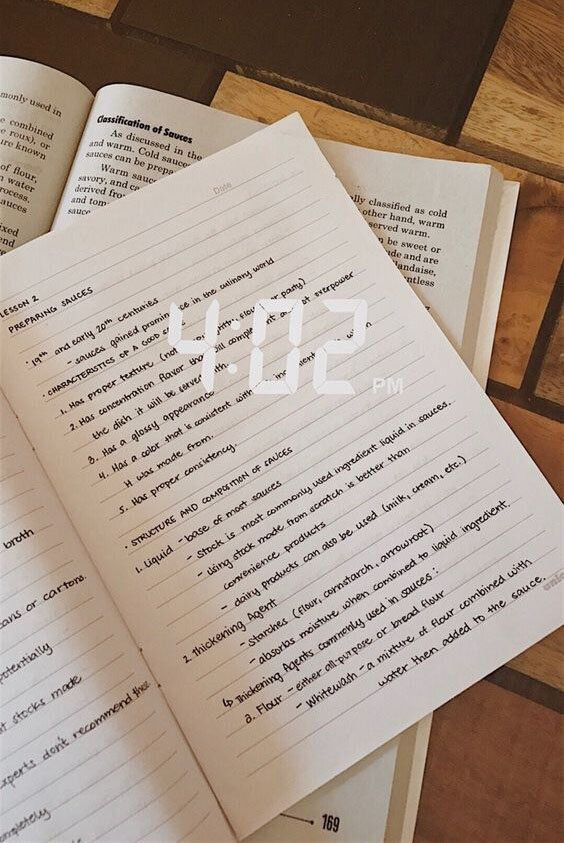 monly used in
combined
roux), or
ure known
of flour,
n water
rocess,
auces
ixed
end
Classification of Sauces
As discussed in the
and warm. Cold sauce
sauces can be prepa
Warm sauc
savory, and ca
derived fro
and tom
sauce
lly classified as cold
other hand, warm
served warm.
n be sweet or
de and are
llandaise,
entless
Date
LESSON 2
PREPARING SAUCES
• 19th and early 20th centuries
- sauces gained prominence in the culinary world
• CHARACTERISTICS OF A GOOD
1. Has proper texture (not
party)
2. Has concentration flavor
complement
not overpower
the dish it will be served
3. Has a glossy appearance
4. Has a color that is consistent with
it was made from.
5. Has proper consistency.
4:02 PM
• STRUCTURE AND COMPOSITION OF SAUCES
1. Liquid - base of most sauces
- stock is most commonly used ingredient liquid in sauces.
- using stock made from scratch is better than
convenience products
- dairy products can also be used (milk, cream, etc.)
2. Thickening Agent
- starches (flour, cornstarch, arrowroot)
- absorbs moisture when combined to liquid ingredient.
↳ Thickening Agents commonly used in sauces:
a. Flour - either all-purpose or bread flour
- Whitewash - a mixture of flour combined with
water then added to the sauce.
broth
ans or cartons.
potentially
t stocks made
xperts don't recommend these
ompletely
169